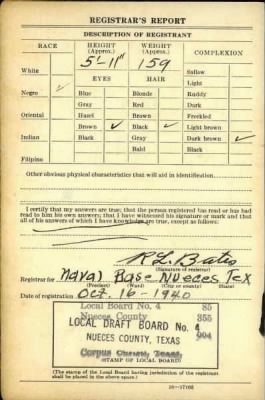 REGISTRAR'S REPORT
DESCRIPTION OF REGISTRANT
RACE HEIGHT (Approx.) WEIGHT (Approx.) COMPLEXION
5'-11" 159
White Sallow
EYES HAIR Light
Negro ✓ Blue Blonde Ruddy
Gray Red Dark
Oriental Hazel Brown Freckled
Brown ✓ Black ✓ Light brown
Indian Black Gray Dark brown ✓
Bald Black
Filipino
Other obvious physical characteristics that will aid in identification
I certify that my answers are true; that the person registered has read or has had
read to him his own answers; that I have witnessed his signature or mark and that
all of his answers of which I have knowledge are true, except as follows:
R. L. Bates
(Signature of registrar)
Registrar for Naval Base Nueces Tex
(Precinct) (Ward) (City or county) (State)
Date of registration Oct. 16-1940
Local Board No. 4 85
Nueces County 355
LOCAL DRAFT BOARD No. 4
004
NUECES COUNTY, TEXAS
Corpus Christi, Texas
(STAMP OF LOCAL BOARD)
(The stamp of the Local Board having jurisdiction of the registrant
shall be placed in the above space.)